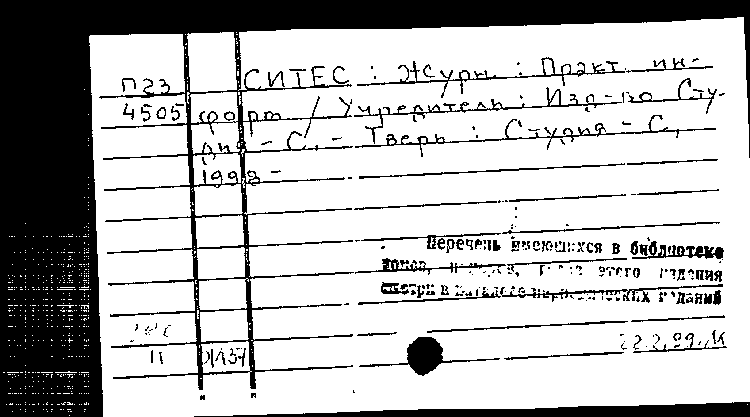 П23 СИТЕС : Журн. : Практ. ин-
4505 форм / Учредитель : Изд-во Сту-
дия - С, - Тверь : Студия - С,
1998 -
Перечень имеющихся в библиотеке
томов, этого издания
смотри в каталоге периодических изданий
11